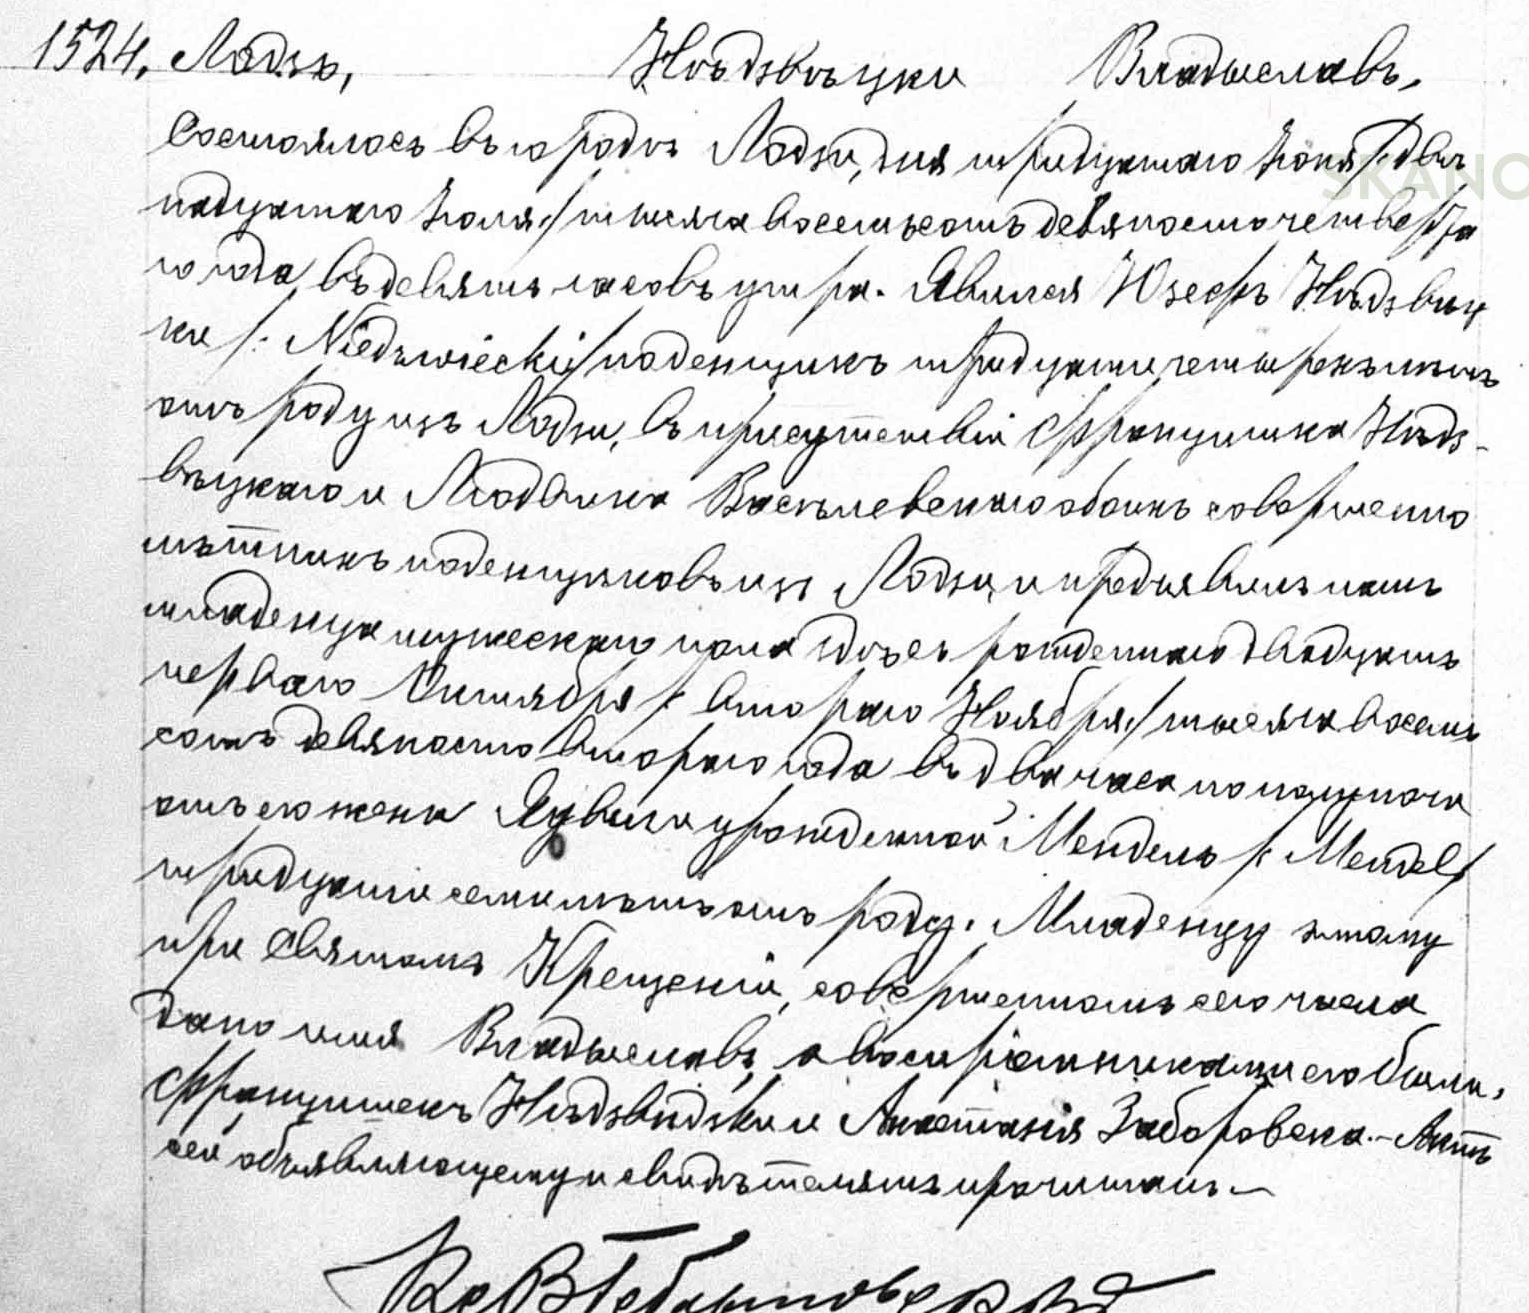 1524. Лодзь, Нѣдзвѣцки Владыславъ.
Состоялось въ городѣ Лодзи, дня тридцатаго Іюня /: двѣ
надцатаго Іюля :/ тысяча восемьсотъ девяносто четверта
го года, въ девять часовъ утра. Явился Юзефъ Нѣдзвѣц
ки /: Niedźwiecki :/ поденщикъ тридцати четырехъ лѣтъ
отъ роду изъ Лодзи, въ присутствіи Францишка Нѣдз-
вѣцкаго и Людвика Васылевскаго обоихъ совершенно
лѣтнихъ поденщиковъ изъ Лодзи, и предъявилъ намъ
младенца мужескаго пола здѣсь рожденнаго двадцать
перваго Октября /: втораго Ноября :/ тысяча восемь
сотъ девяносто втораго года въ два часа по полуночи
отъ его жены Ядвиги урожденной Мендель /: Mendel :/
тридцати семи лѣтъ отъ роду. Младенцу этому
при Святомъ Крещеніи, совершенномъ сего числа
дано имя Владыславъ, а воспріемниками его были,
Францишекъ Нѣдзвѣдзки и Анастазія Заборовска. - Актъ
сей объявляющему и свидѣтелямъ прочитанъ. -
SKANO